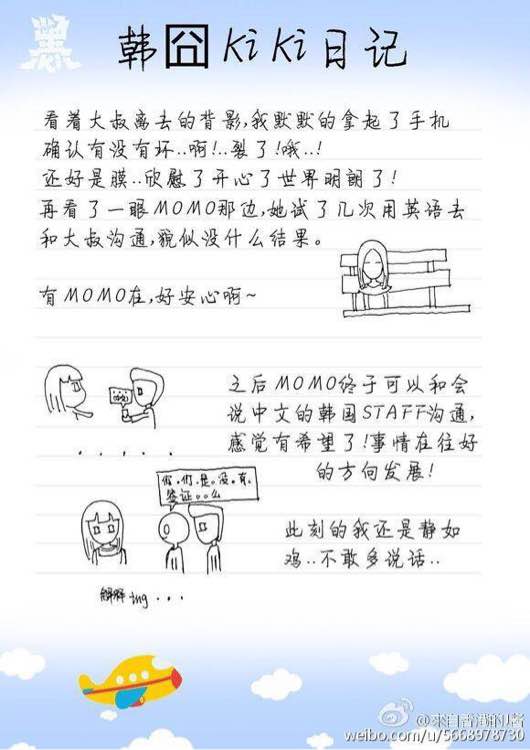 韩囧KiKi日记
看着大叔离去的背影,我默默的拿起了手机
确认有没有坏..啊!..裂了!哦..!
还好是膜..欣慰了开心了世界明朗了!
再看了一眼MOMO那边,她试了几次用英语去
和大叔沟通,貌似没什么结果。
有MOMO在,好安心啊~
之后MOMO终于可以和会
说中文的韩国STAFF沟通,
感觉有希望了!事情在往好
的方向发展!
.....
你.们.是.没.有.
签证。。么
此刻的我还是静如
鸡..不敢多说话..
解释ing...
weibo.com/u/5668978730